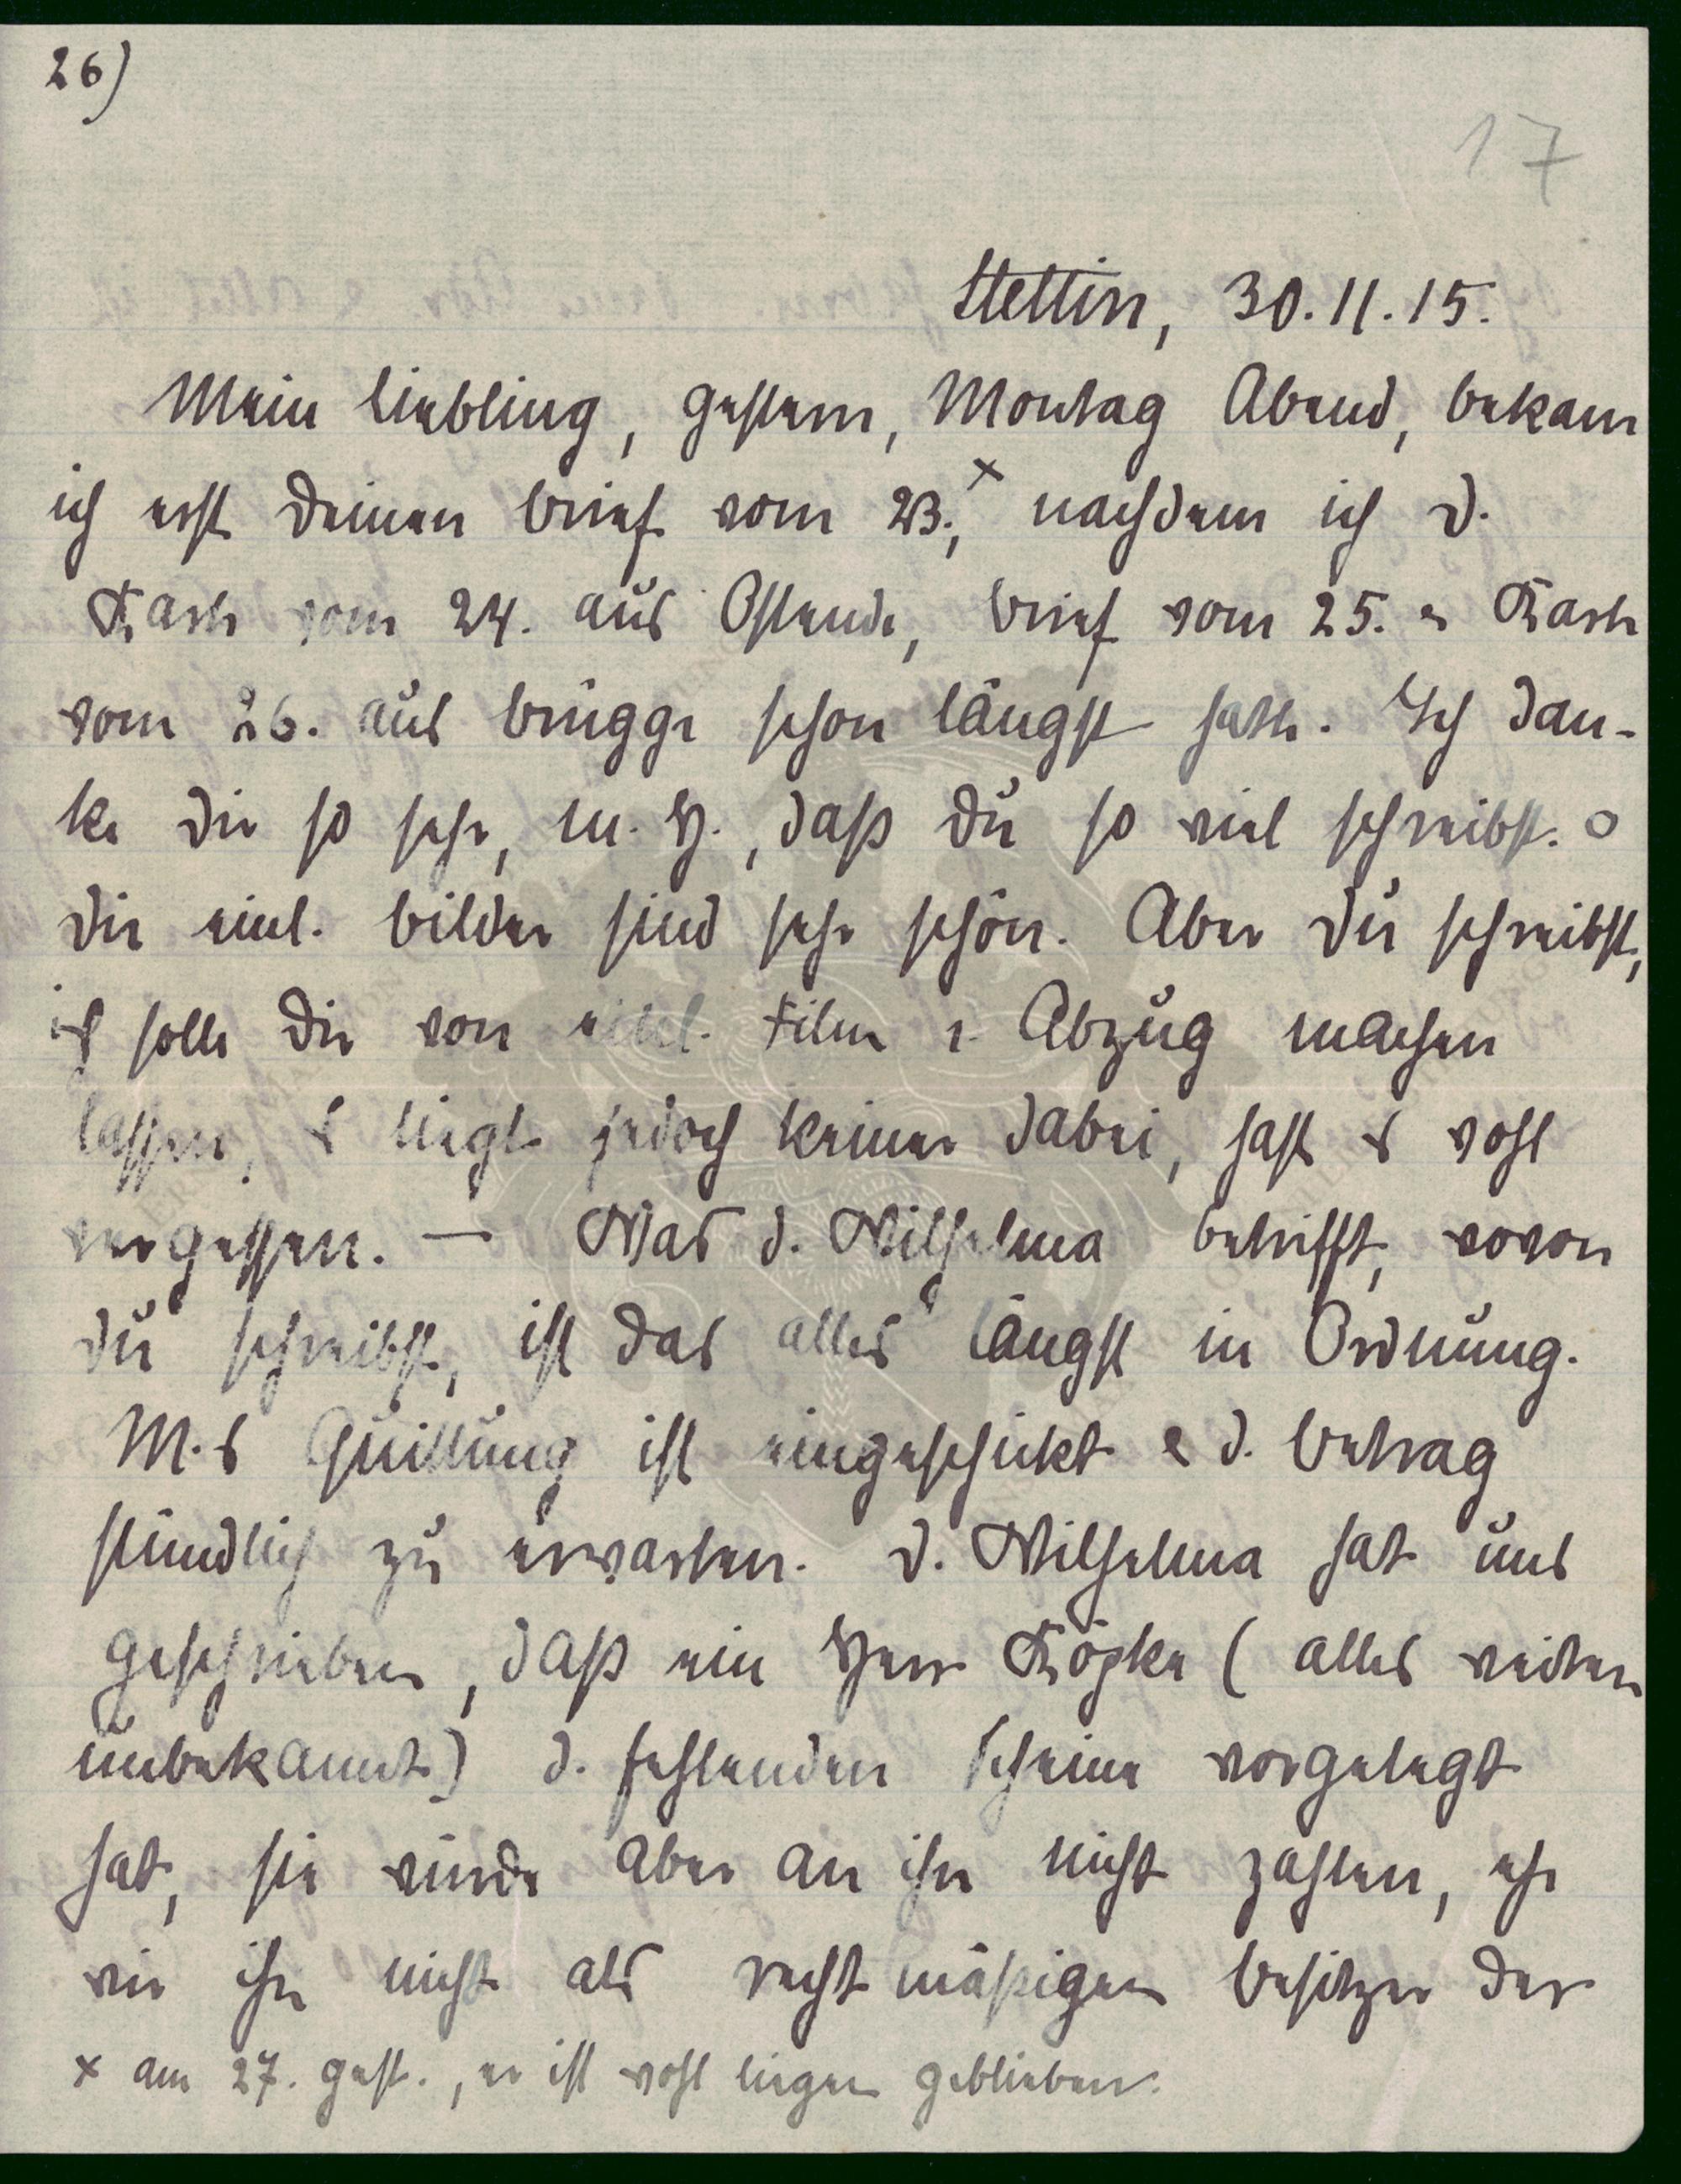 26)
17
Stettin, 30.11.15.
Mein Liebling, gestern, Montag Abend, bekam
ich erst Deinen Brief vom 23.,x nachdem ich d.
Karte vom 24. aus Ostende, Brief vom 25. u Karte
vom 26. aus Brügge schon längst hatte. Ich dan-
ke Dir so sehr, m. H., daß Du so viel schreibst.
Die einl. Bilder sind sehr schön. Aber Du schreibst,
ich solle Dir von einl. Film 1. Abzug machen
lassen, es liegt jedoch keiner dabei, hast es wohl
vergessen. — Was d. Wilhelma betrifft, wovon
Du schreibst, ist das alles längst in Ordnung.
M.s Quittung ist eingeschickt u d. Betrag
stündlich zu erwarten. D. Wilhelma hat uns
geschrieben, daß ein Herr Köpke (alles weitere
unbekannt) d. fehlenden Scheine vorgelegt
hat, sie würde aber an ihn nicht zahlen, ehe
wir ihn nicht als rechtmäßigen Besitzer der
x am 27. gest., er ist wohl liegen geblieben.